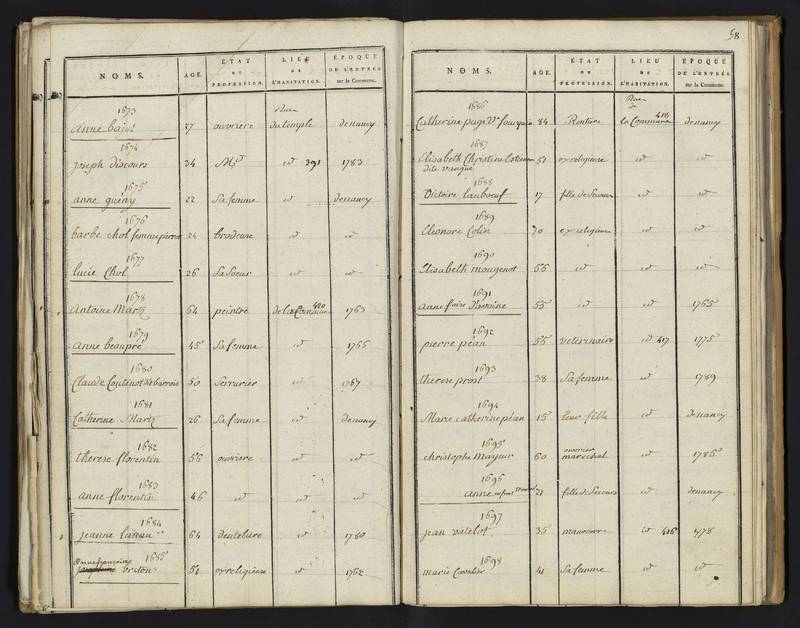 NOMS. AGE. ÉTAT OU PROFESSION. LIEU DE L'HABITATION. ÉPOQUE DE L'ENTRÉE sur la Commune.
1673 Rue
Anne bajot 27 ouvriere du temple denancy
1674
joseph Discours 34 Md id 391 1783
1675
anne guény 22 Sa femme id denancy
1676
barbe chol femme pierron 24 brodeuse id id
1677
lucie Chol 26 Sa Soeur id id
1678
Antoine Martz 64 peintre de la Commune 420 1763
1679
Anne beaupré 45 Sa femme id 1755
1680
Claude Coutenot dit barrois 50 Serrurier id 1767
1681
Catherine Martz 26 Sa femme id denancy
1682
therese florentin 56 ouvriere id id
1683
anne florentin 46 id id id
1684
jeanne 64 dentelure id 1780
1685
Anne françoise briton 51 exreligieuse id 1762
58
NOMS. AGE. ÉTAT OU PROFESSION. LIEU DE L'HABITATION. ÉPOQUE DE L'ENTRÉE sur la Commune.
1686 Rue
Catherine page Ve 84 Rentiere la Commune 418 denancy
1687
Elisabeth Christine 51 exreligieuse id id
dite vauqué
1688
Victoire lauboeuf 17 fille de Secours id id
1689
Eleonore Colin 70 ex religieuse id id
1690
Elisabeth mougenot 56 id id id
1691
Anne foire 55 id id 1765
1692
pierre péan 55 veterinaire id 417 1775
1693
therese prost 38 Sa femme id 1789
1694
Marie catherine péan 15 leur fille id denancy
1695 ouvrier
christophe Mayeur 60 marechal id 1785
1696
anne enfant trouvé 21 fille de Secours id denancy
1697
jean vatelot 35 manoeuvre id 416 1778
1698
marie Cuvelier 41 Sa femme id id